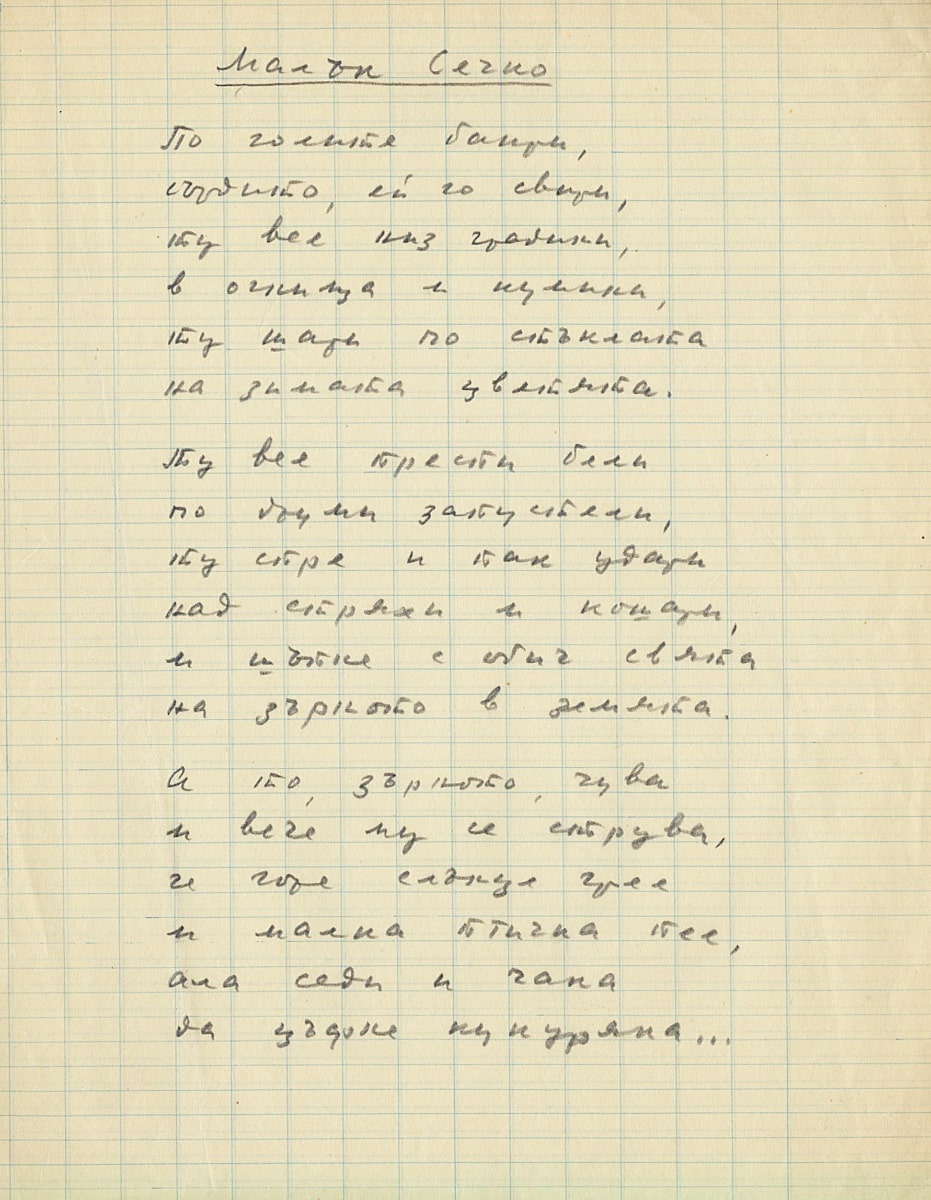 Малък Сечко
По голите баири,
сърдито, ей го свири,
ту вее низ градини,
в огнища и кумини,
ту шари по стъклата
на зимата цветята.
Ту вее преспи бели
по друми запустели,
ту спре и пак удари
над стряхи и кошари,
и шъпне с обич свята
на зърното в земята.
А то, зърното, чува
и вече му се струва,
че горе слънце грее
и малка птичка пее,
ала седи и чака
да цъфне кукуряка...